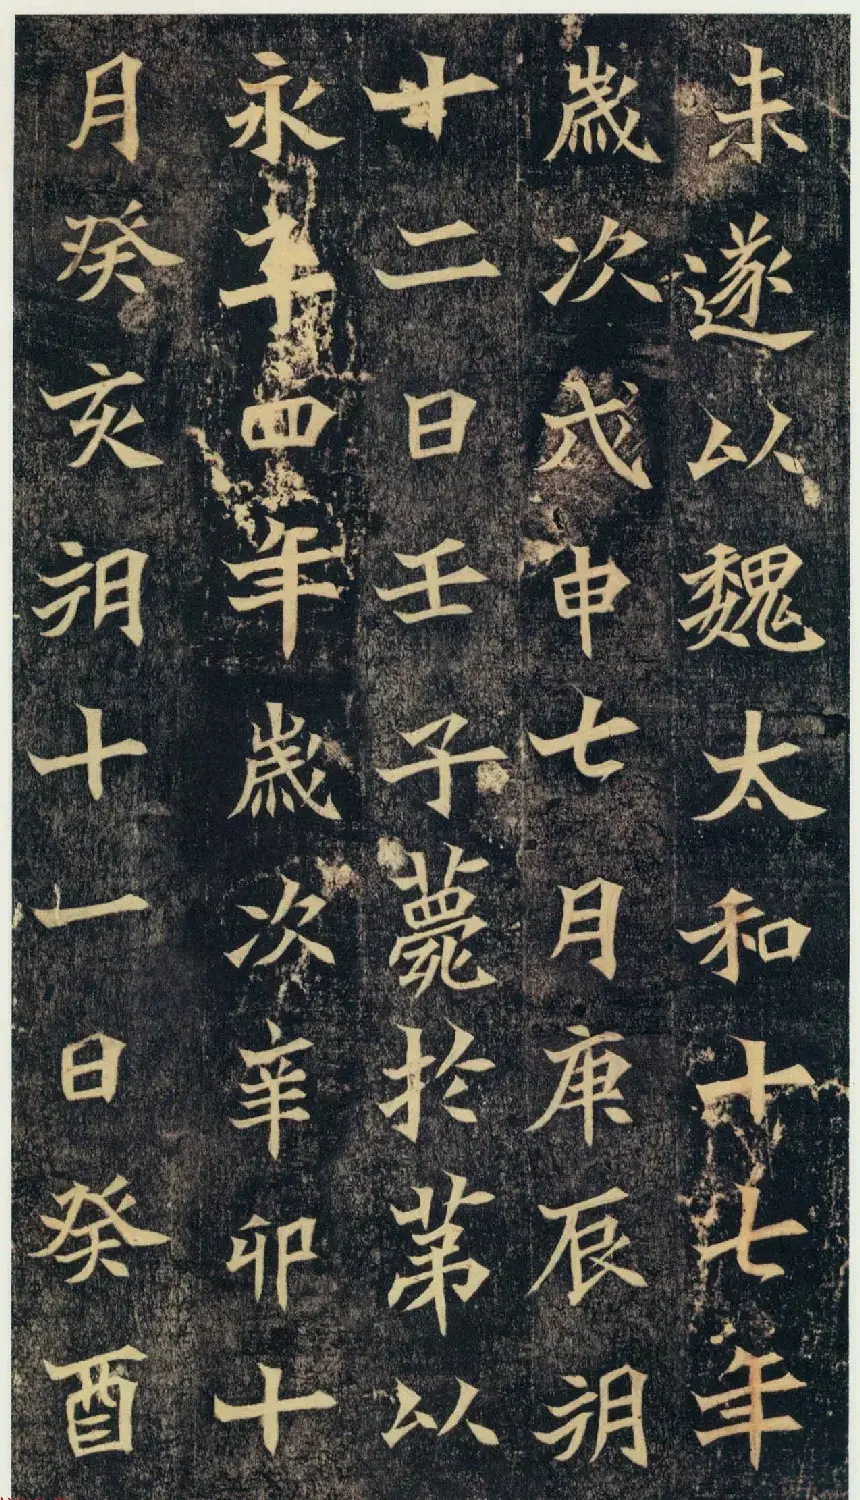 未遂以魏太和十七年
歲次戊申七月庚辰朔
十二日壬子薨於苐以
永平四年歲次辛卯十
月癸亥朔十一日癸酉